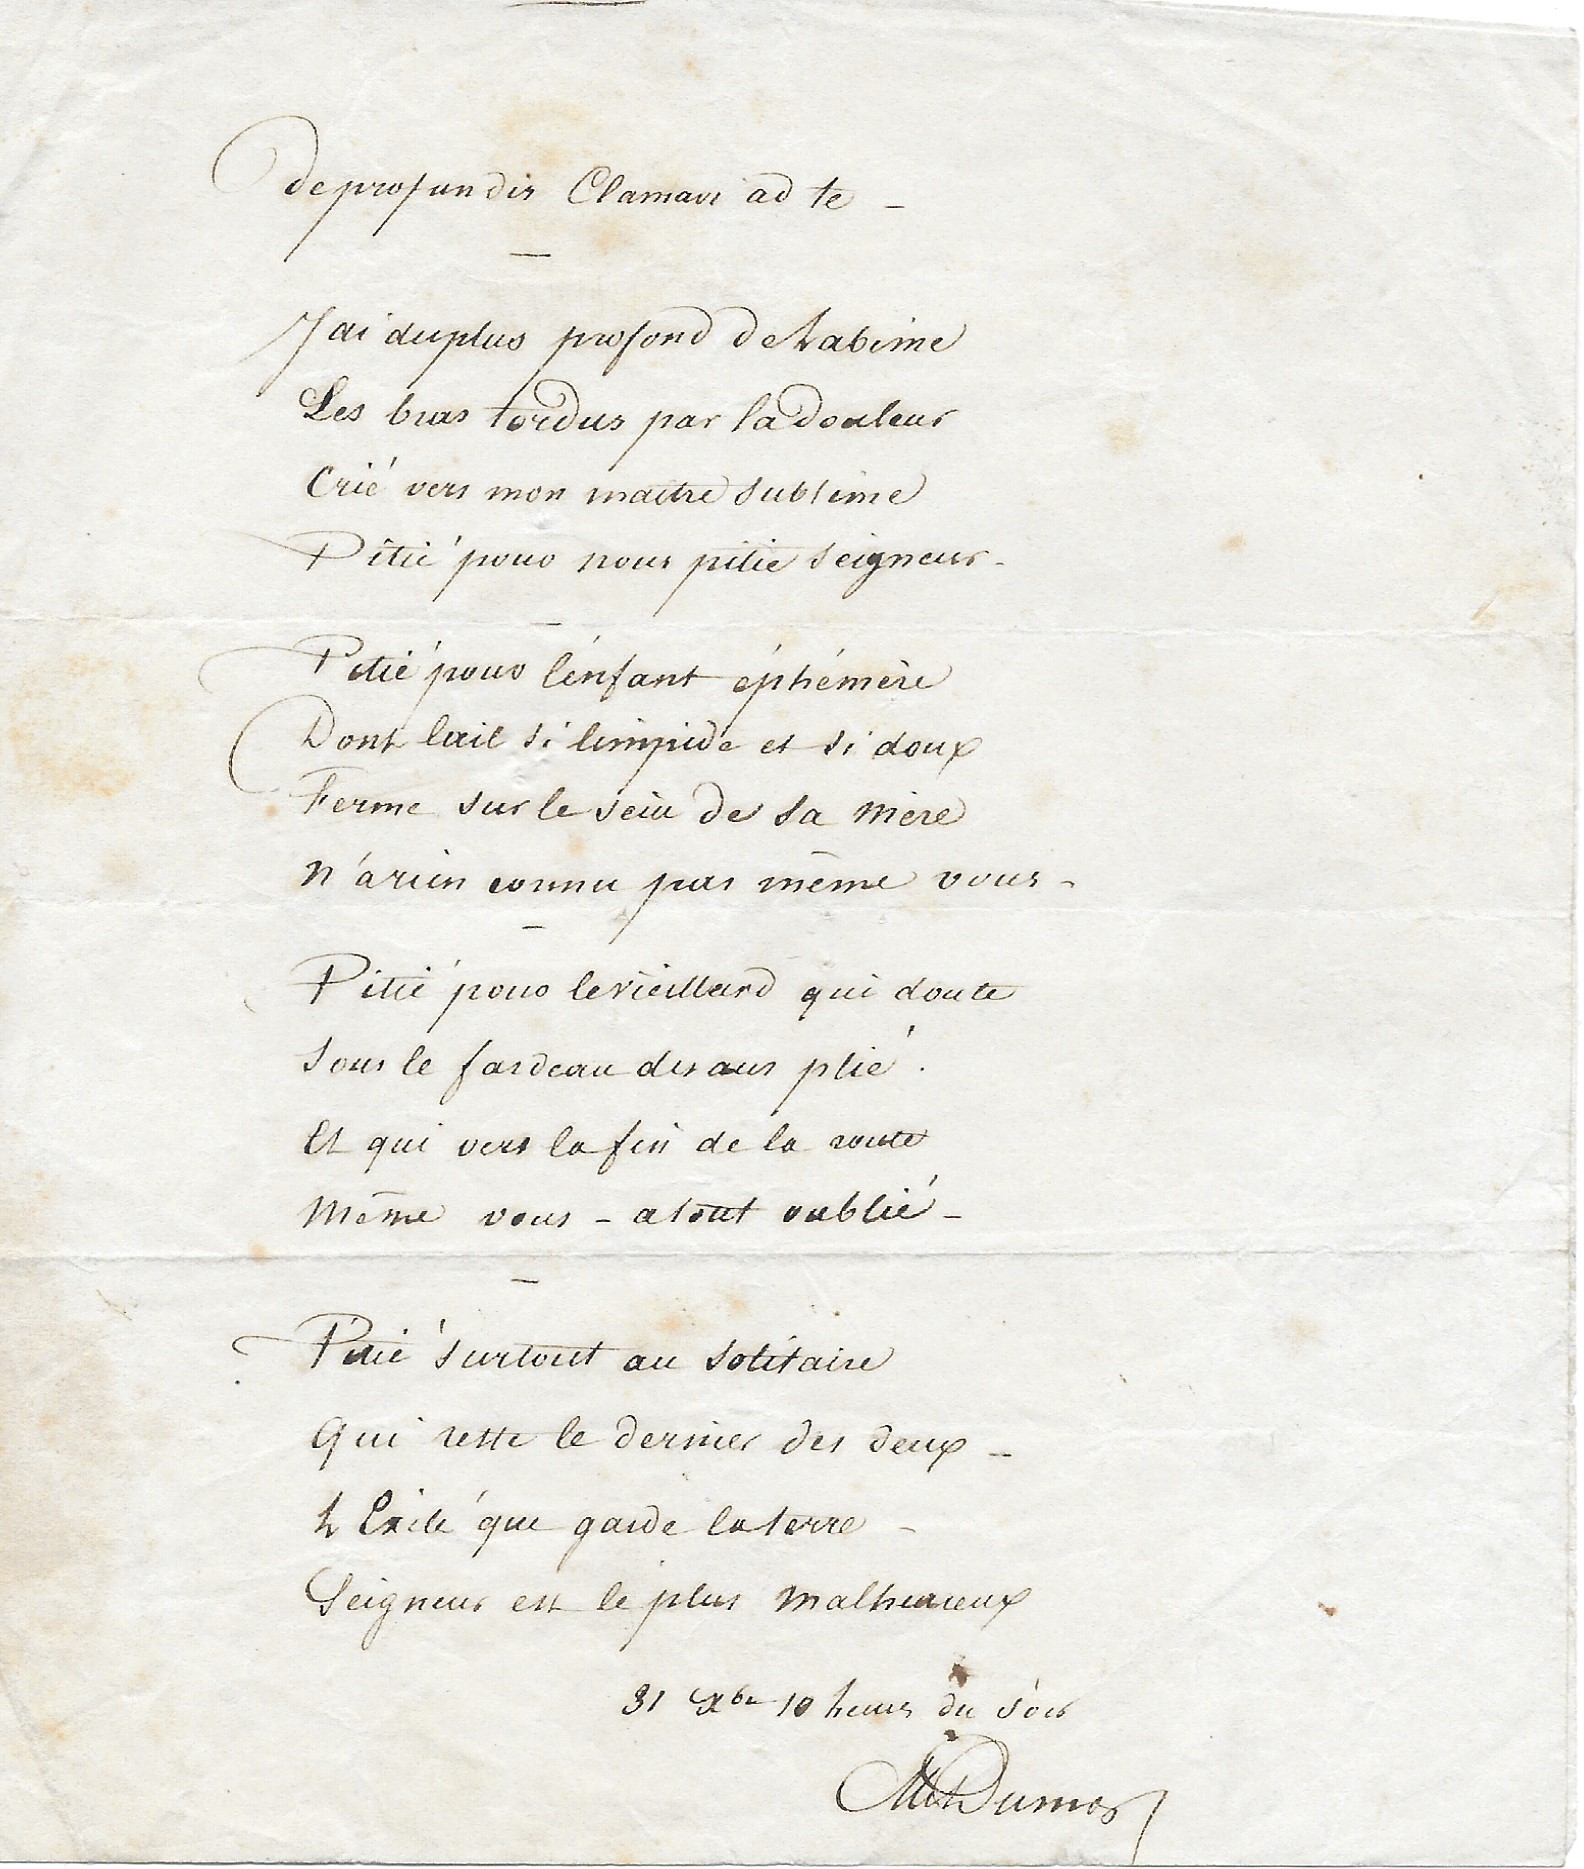 De profundis Clamavi ad te –
J'ai du plus profond de Labime
Les bras tordus par la douleur
Crié vers mon maitre sublime
Pitié pour nous pitié seigneur –
Pitié pour l'énfant éphémère
Dont l'œil si limpide et si doux
Fermé sur le sein de sa mère
N'a rien connu pas même vous –
Pitié pour le vieillard qui doute
Sous le fardeau des ans plié.
Et qui vers la fin de la route
Même vous – a tout oublié –
Pitié surtout au solitaire
Qui reste le dernier des deux –
L Exilé que garde la terre –
Seigneur est le plus malheureux
31 Xbre 10 heures du soir
Alex Dumas